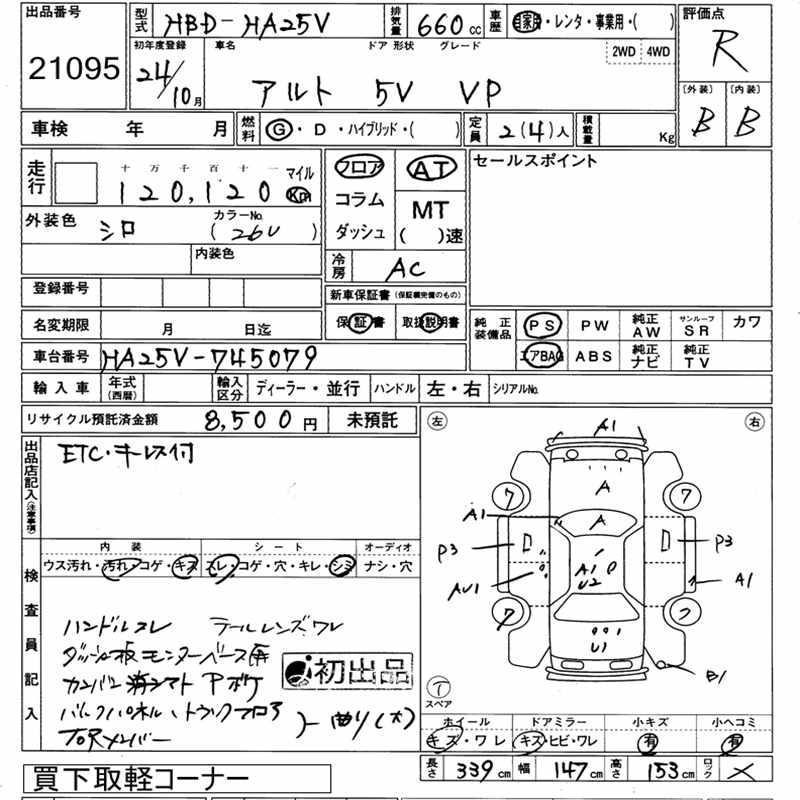 出品番号
21095
型式 HBD-HA25V
排気量 660 cc
車歴 自家用・レンタ・事業用・( )
評価点
R
初年度登録
24/10月
車名 ドア 形状 グレード
アルト 5V VP
2WD 4WD
〔外装〕 〔内装〕
B B
車検 年 月
燃料 G・D・ハイブリッド・( )
定員 2(4)人
積載量 Kg
走行
十 万 千 百 十 一 マイル
120,120 Km
フロア
コラム
ダッシュ
AT
MT
( )速
セールスポイント
外装色 シロ
カラーNo.
(26U)
内装色
冷房 AC
登録番号
新車保証書(保証継続完備のもの)
名変期限 月 日迄
保証書 取扱説明書
純正装備品
PS PW 純正AW サンルーフSR カワ
エアBAG ABS 純正ナビ 純正TV
車台番号 HA25V-745079
輸入車 年式(西暦) 輸入区分 ディーラー・並行 ハンドル 左・右 シリアルNo.
リサイクル預託済金額 8,500円 未預託
出品店記入(注意事項)
ETC・キーレス付
左 右
A1
A
7 7
A1 A
P3 P3
A1 U2
AU1 A1
7
U1
B1
スペア
内装 シート オーディオ
ウス汚れ・汚れ・コゲ・キズ スレ・コゲ・穴・キレ・シミ ナシ・穴
検査員記入
ハンドルスレ テールレンズワレ
ダッシュ板モニターベース痕
初出品
バックパネル、トランクフロア 曲り(大)
ホイール ドアミラー 小キズ 小ヘコミ
キズ・ワレ キズ・ヒビ・ワレ 有 有
買下取軽コーナー
長さ 339cm 幅 147cm 高さ 153cm ロック ×